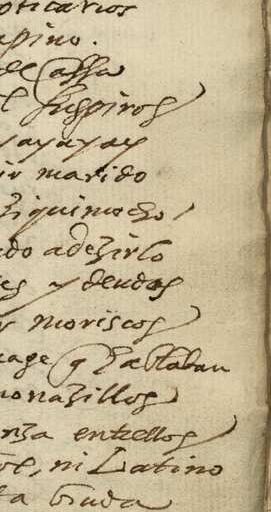 oticarios
apino.
de Cassa
suspiros
yayayay
ir marido
ziquimocho
do adezirlo
es y deudos
s moriscos
uage q hablaban
monazillos
nza entrellos
ol, ni Latino
ta bruda